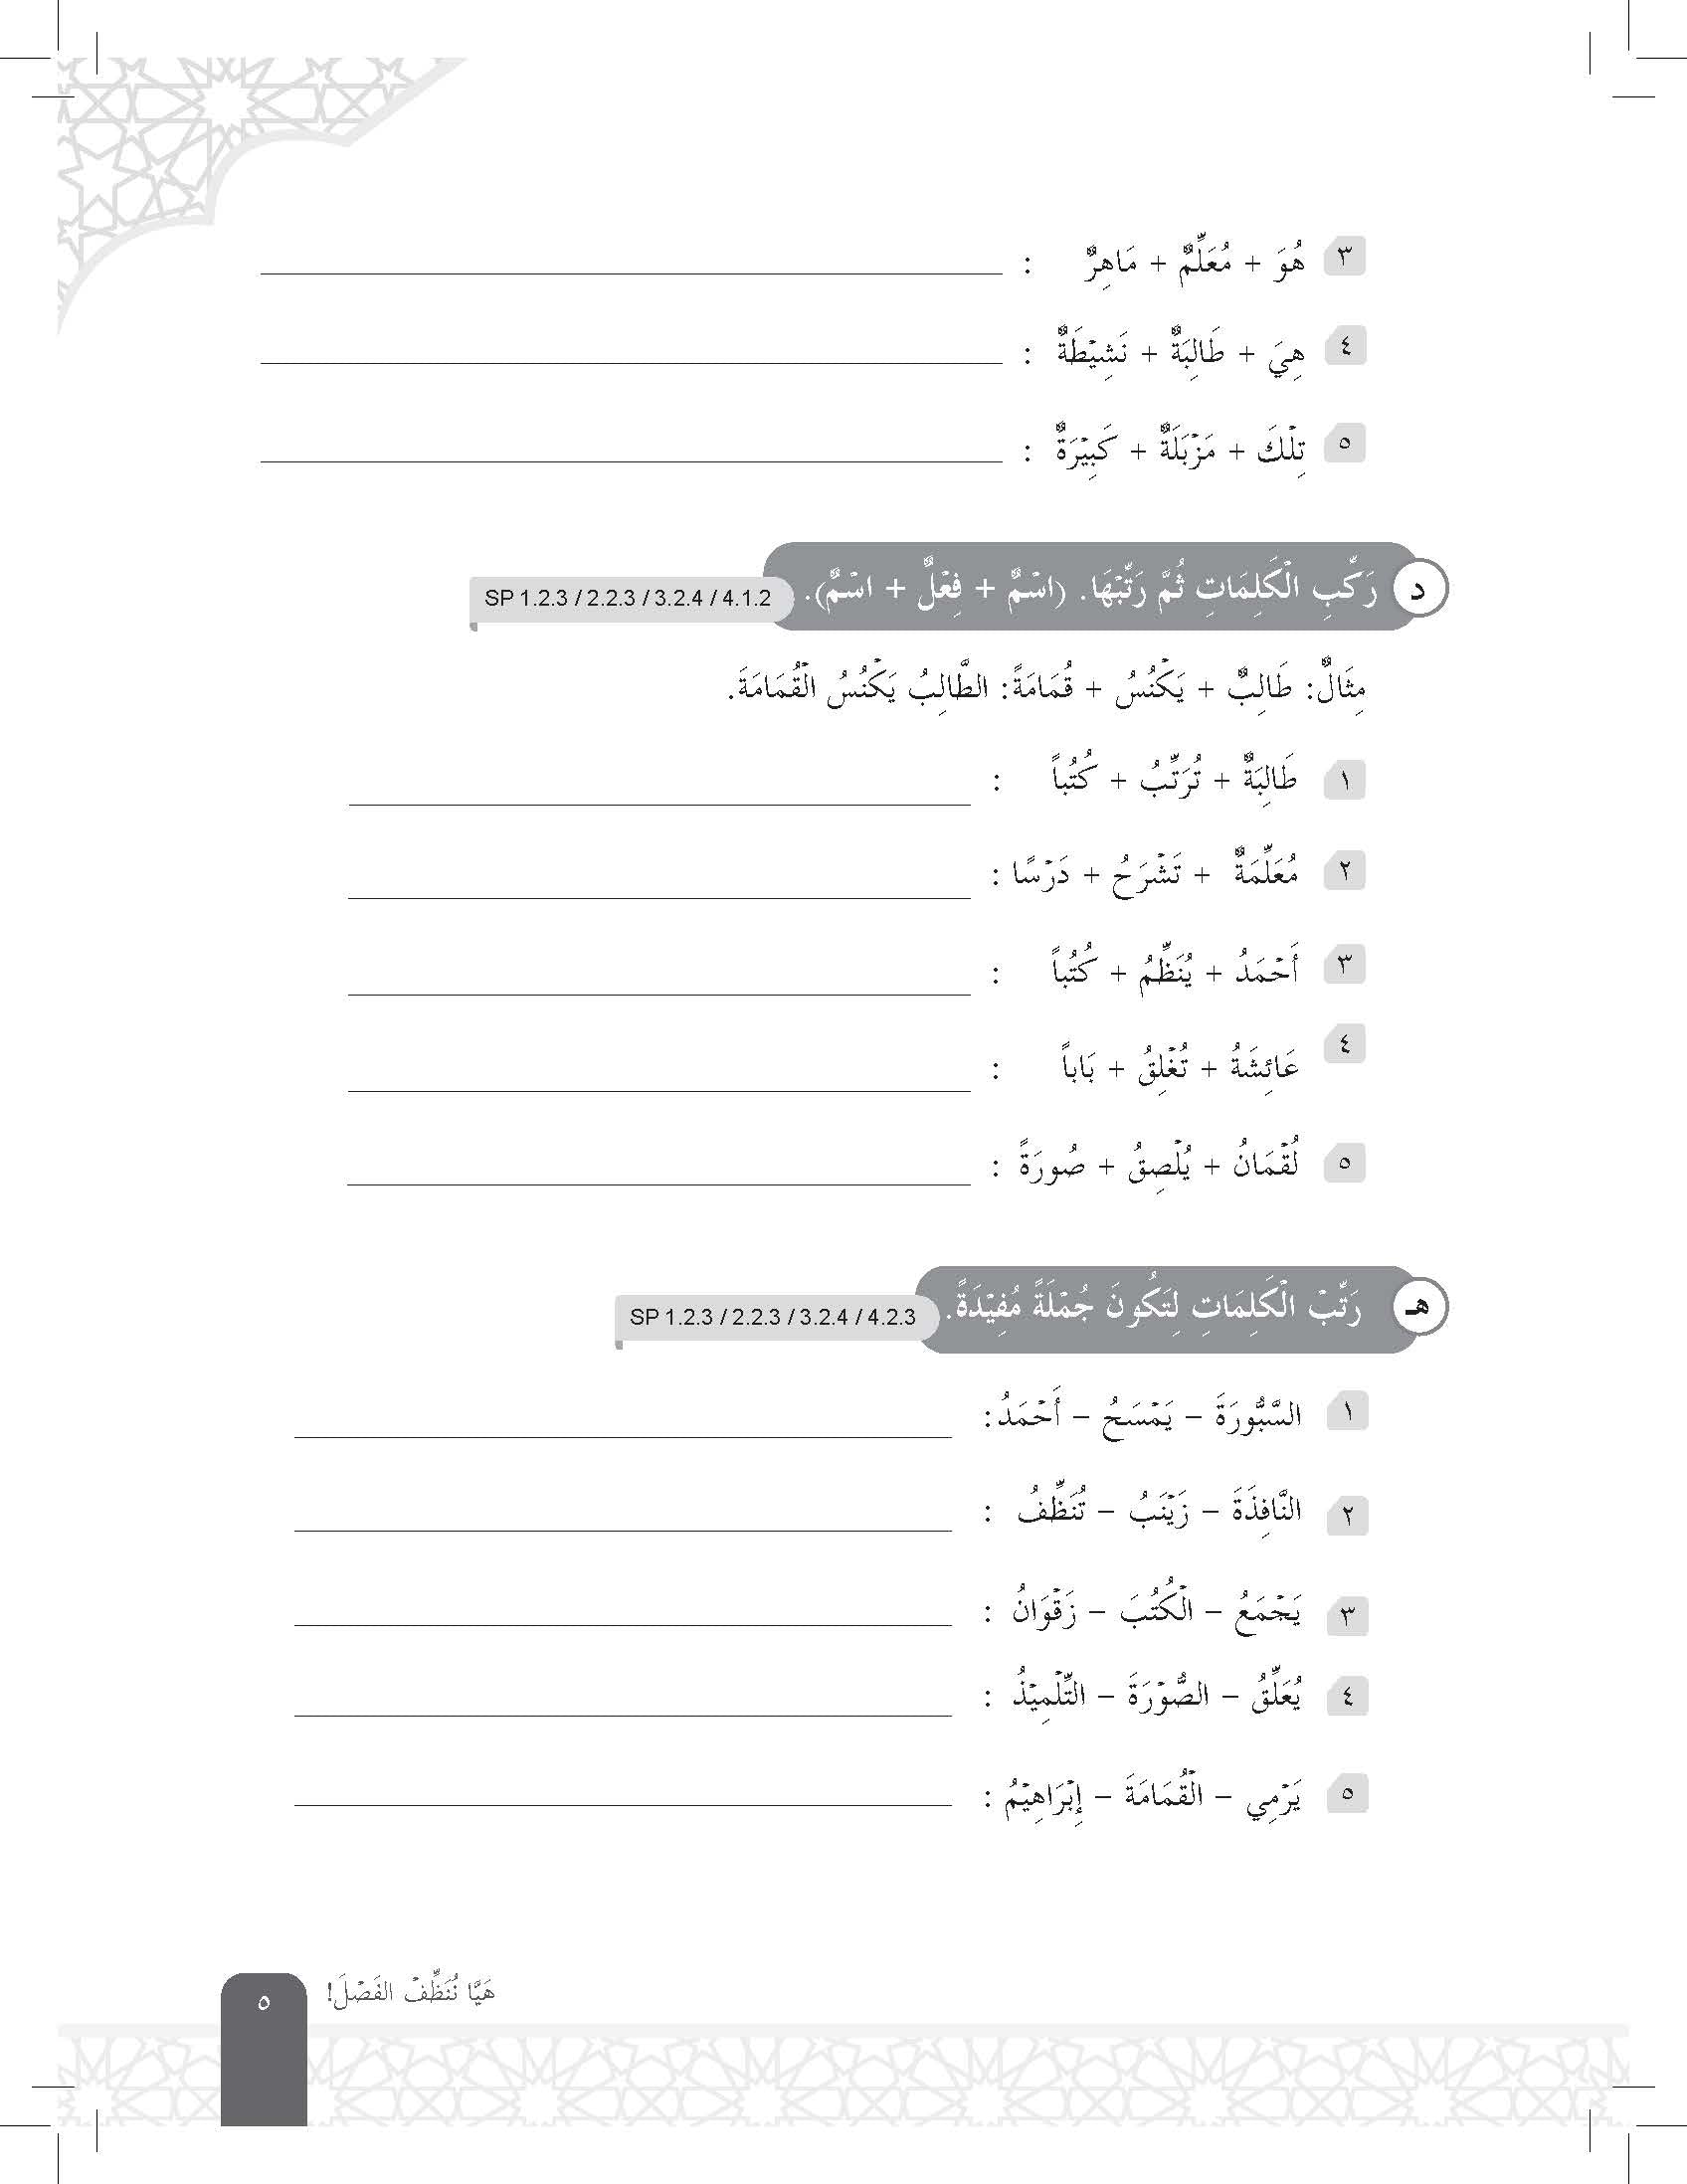 ٣ هُوَ + مُعَلِّمٌ + مَاهِرٌ :
٤ هِيَ + طَالِبَةٌ + نَشِيْطَةٌ :
٥ تِلْكَ + مَزْبَلَةٌ + كَبِيْرَةٌ :
د رَكِّبِ الْكَلِمَاتِ ثُمَّ رَتِّبْهَا. (اسْمٌ + فِعْلٌ + اسْمٌ). SP 1.2.3 / 2.2.3 / 3.2.4 / 4.1.2
مِثَالٌ: طَالِبٌ + يَكْنُسُ + قُمَامَةً: الطَّالِبُ يَكْنُسُ الْقُمَامَةَ.
١ طَالِبَةٌ + تُرَتِّبُ + كُتُباً :
٢ مُعَلِّمَةٌ + تَشْرَحُ + دَرْسًا :
٣ أَحْمَدُ + يُنَظِّمُ + كُتُباً :
٤ عَائِشَةُ + تُغْلِقُ + بَاباً :
٥ لُقْمَانُ + يُلْصِقُ + صُورَةً :
هـ رَتِّبْ الْكَلِمَاتِ لِتَكُونَ جُمْلَةً مُفِيْدَةً. SP 1.2.3 / 2.2.3 / 3.2.4 / 4.2.3
١ السَّبُّورَةَ – يَمْسَحُ – أَحْمَدُ:
٢ النَّافِذَةَ – زَيْنَبُ – تُنَظِّفُ :
٣ يَجْمَعُ – الْكُتُبَ – زَقْوَانُ :
٤ يُعَلِّقُ – الصُّوْرَةَ – التِّلْمِيْذُ :
٥ يَرْمِي – الْقُمَامَةَ – إِبْرَاهِيْمُ :
هَيَّا نُنَظِّفْ الفَصْلَ!
٥